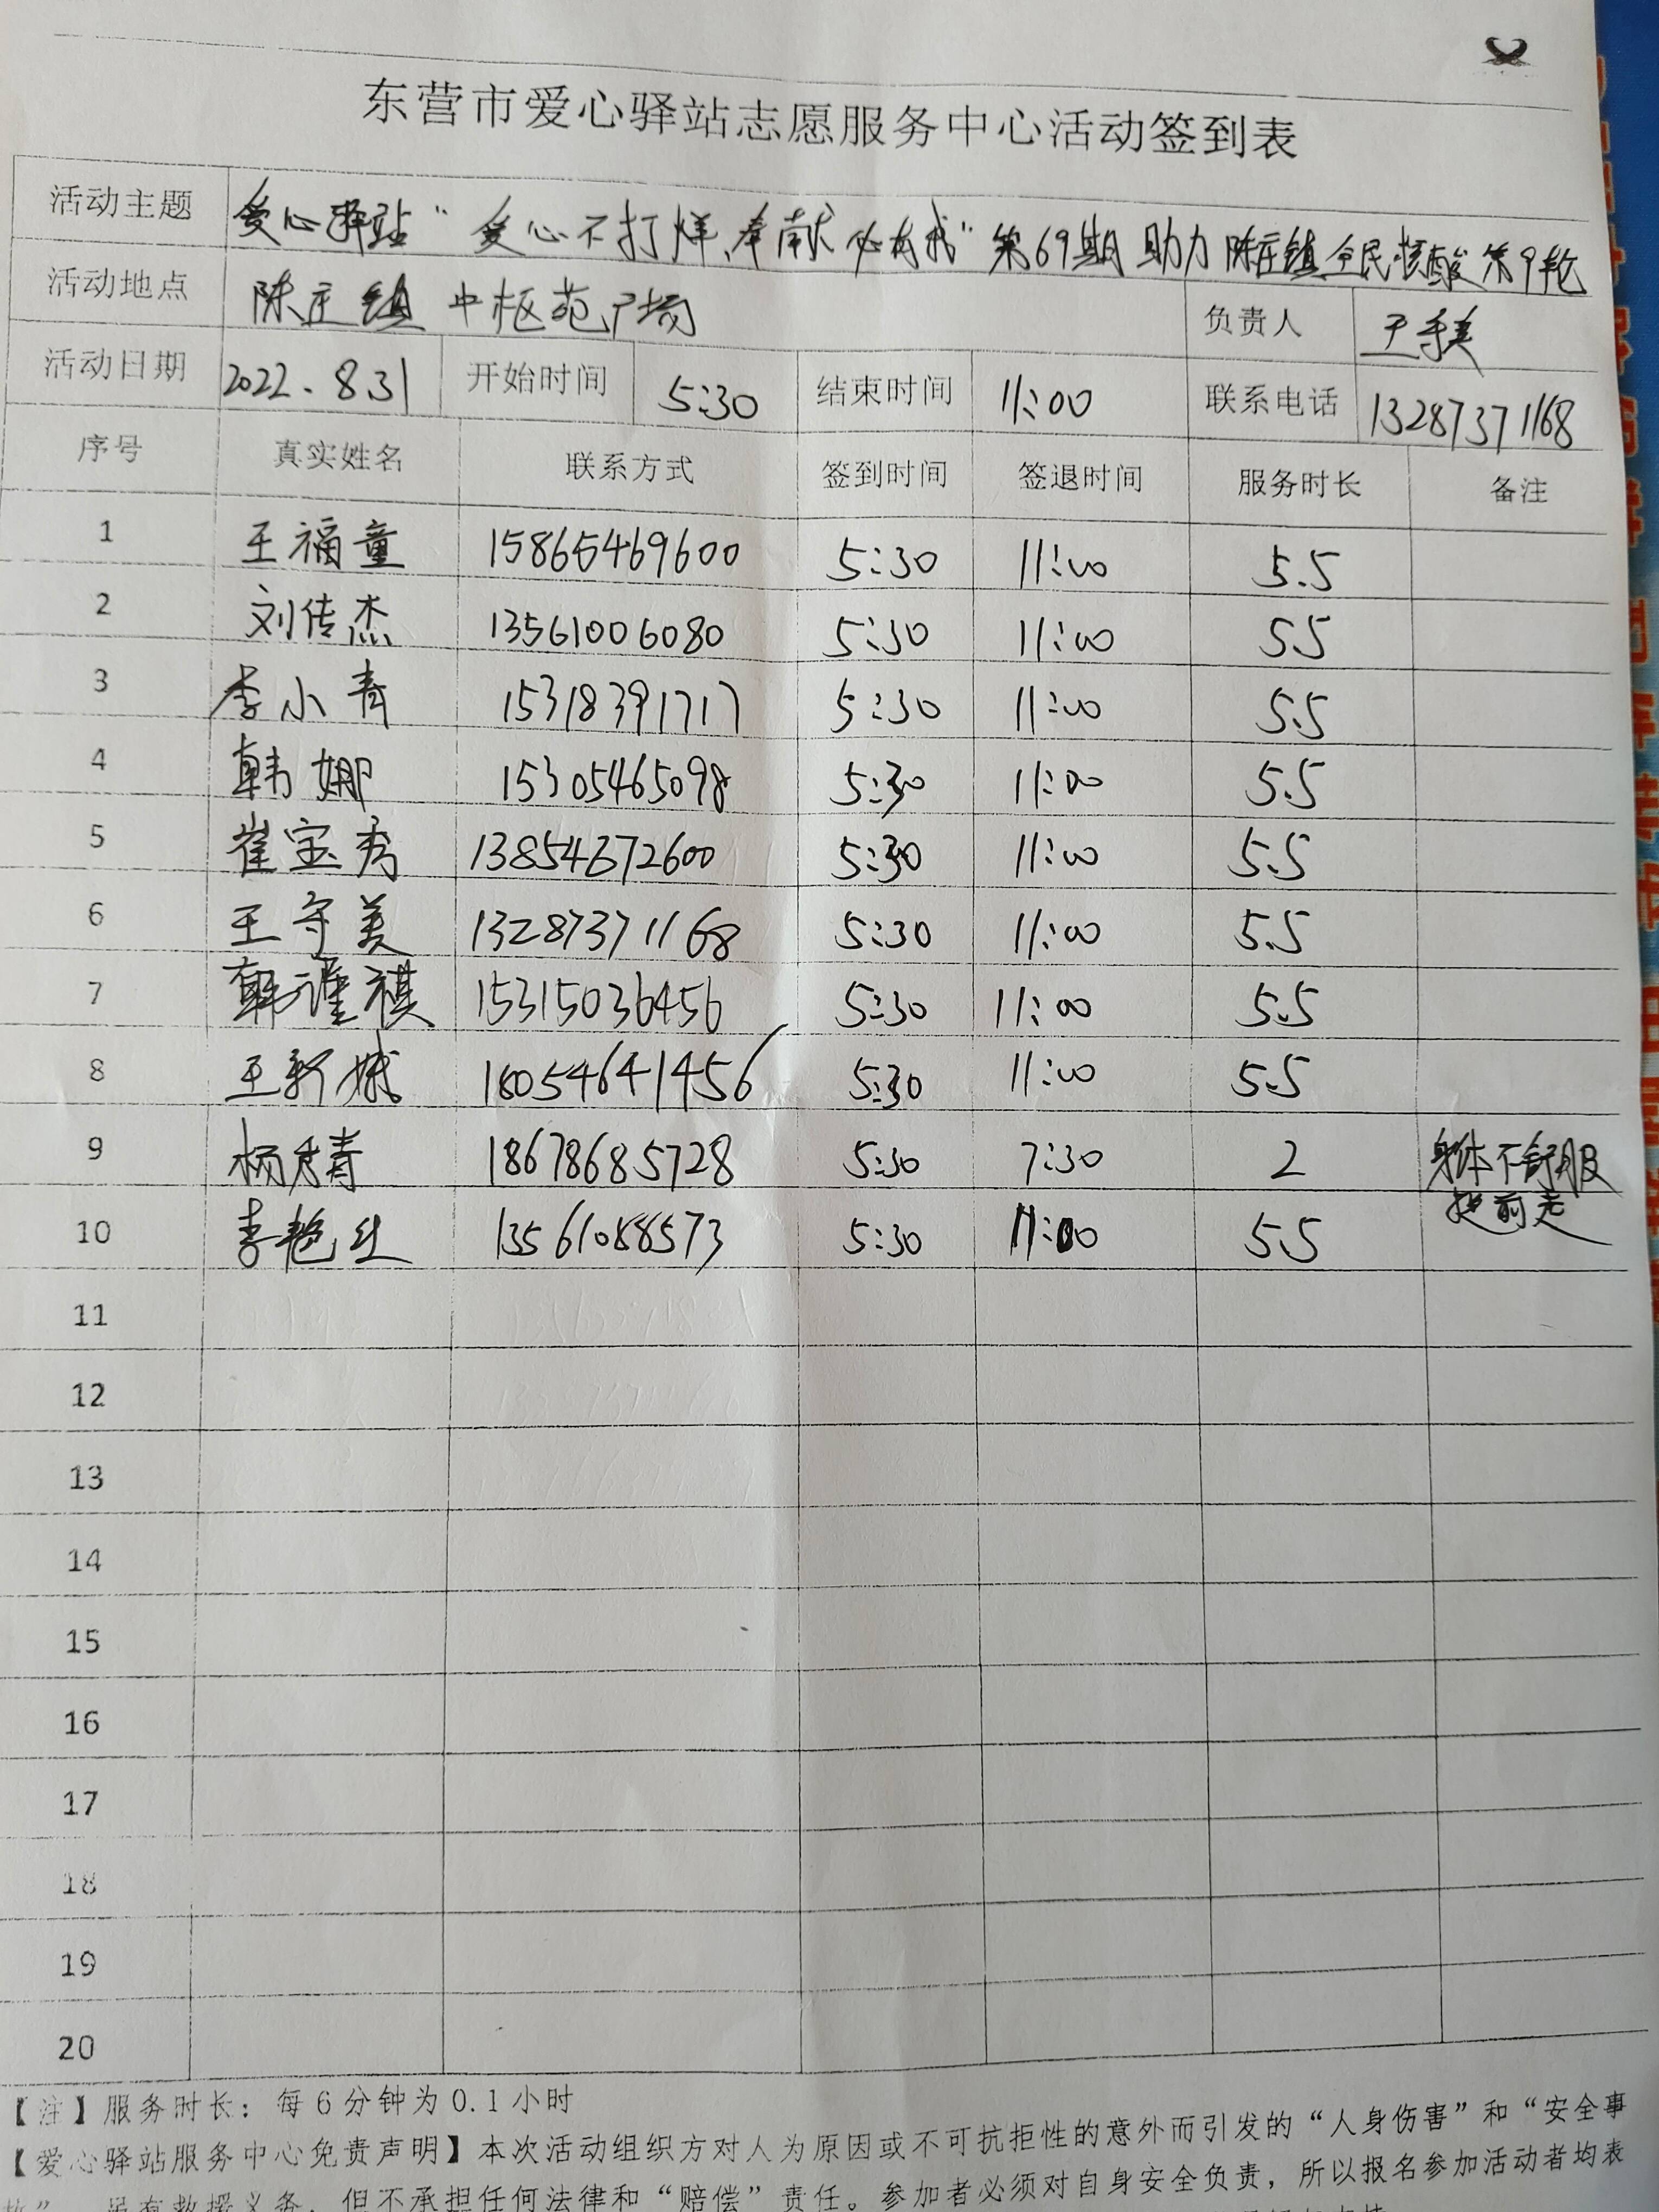 东营市爱心驿站志愿服务中心活动签到表
活动主题 爱心驿站“爱心不打烊,奉献必有我”第69期助力陈庄镇全民核酸第9轮
活动地点 陈庄镇中枢苑广场 负责人 王守美
活动日期 2022.8.31 开始时间 5:30 结束时间 11:00 联系电话 13287371168
序号 真实姓名 联系方式 签到时间 签退时间 服务时长 备注
1 王福童 15865469600 5:30 11:00 5.5
2 刘传杰 13561006080 5:30 11:00 5.5
3 李小青 15318391717 5:30 11:00 5.5
4 韩娜 15305465098 5:30 11:00 5.5
5 崔宝秀 13854672600 5:30 11:00 5.5
6 王守美 13287371168 5:30 11:00 5.5
7 韩谨祺 15315036456 5:30 11:00 5.5
8 王新娥 18054641456 5:30 11:00 5.5
9 杨秀青 18678685728 5:30 7:30 2 身体不舒服
提前走
10 李艳红 13561088573 5:30 11:00 5.5
11
12
13
14
15
16
17
18
19
20
【注】服务时长：每6分钟为0.1小时
【爱心驿站服务中心免责声明】本次活动组织方对人为原因或不可抗拒性的意外而引发的“人身伤害”和“安全事
故”，虽有救援义务，但不承担任何法律和“赔偿”责任。参加者必须对自身安全负责，所以报名参加活动者均表